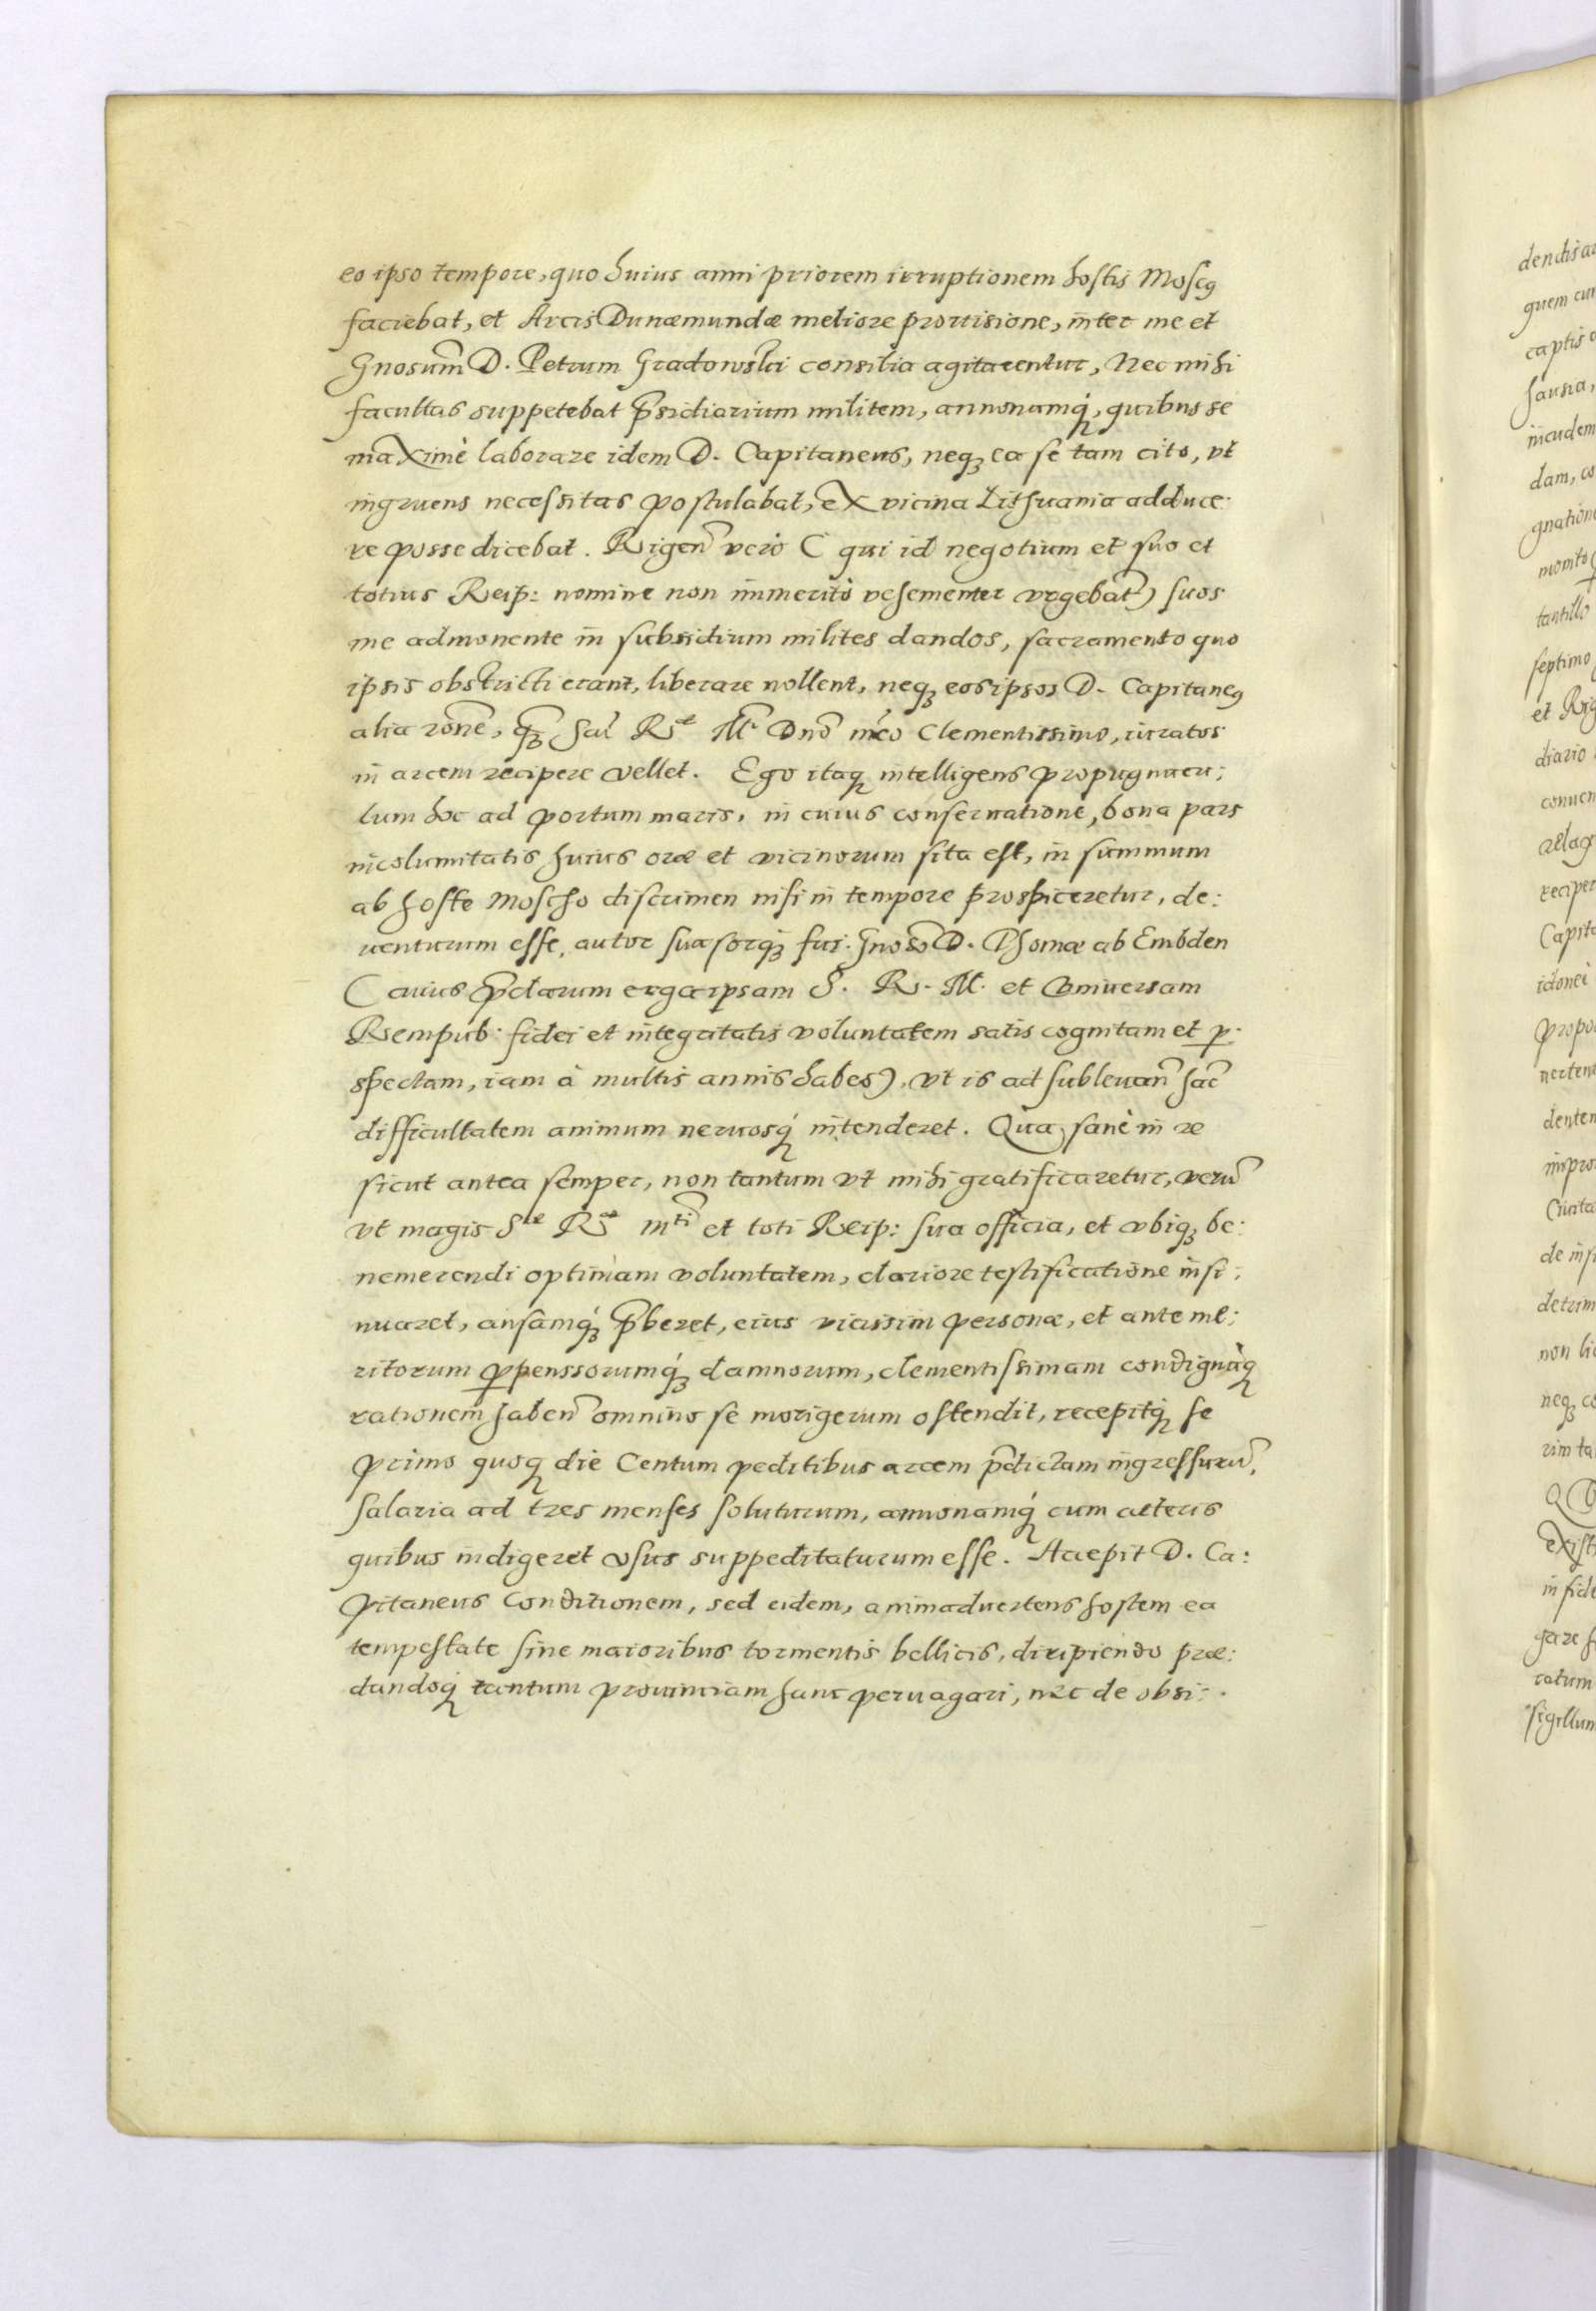 eo ipso tempore, quo huius anni priorem irruptionem hostis Moscꝰ
faciebat, et Arcis Dunæmundæ meliore prouisione, inter me et
Gnosum̃ D. Petrum Gradowski consilia agitarentur, Nec mihi
facultas suppetebat p̃sidiarium militem, annonamq́, quibus se
maximè laborare idem D. Capitaneus, neqȝ ea se tam cito, vt
ingruens necessitas postulabat, ex vicina Lithuania adduce:
re posse dicebat. Rigen̄ verò ( qui id negotium et suo et
totius Reip: nomine non immeritò vehementer vrgebat̃) suos
me admonente in subsidium milites dandos, sacramento quo
ipsis obstricti erant, liberare nollent, neqȝ eos ipsos D. Capitaneꝰ
alia rōne, q̃ȝ Sac̃ Rᵉ Mᵗⁱ Dnō meo Clementissimo, iuratos
in arcem recipere vellet. Ego itaqȝ intelligens propugnacu:
lum hoc ad portum maris, in cuius conseruatione, bona pars
incolumitatis huius oræ et vicinorum sita est, in summum
ab hoste Moscho discrimen nisi in tempore prospiceretur, de:
uenturum esse, autor suasorq́ȝ fui Gnoso D. Thomæ ab Embden
( cuius p̃clarum erga ipsam S. R. M. et Vniuersam
Rempub: fidei et integritatis voluntatem satis cognitam et p̱:
spectam, iam à multis annis habes), vt is ad subleuan̄ hāc
difficultatem animum neruosq́ intenderet. Qua sanè in re
sicut antea semper, non tantum vt mihi gratificaretur, verū
vt magis Sᵃᵉ Rᵃᵉ Mᵗⁱ et toti Reip: sua officia, et vbiqȝ be:
nemerendi optimam voluntatem, clariore testificatione insi:
nuaret, ansamq́ȝ p̃beret, eius vicissim personæ, et ante me:
ritorum p̱penssorumq́ȝ damnorum, clementissimam condignāqȝ
rationem haben̄ omnino se morigerum ostendit, recepitq́ se
primo quoqȝ die Centum peditibus arcem p̃dictam ingressurū,
salaria ad tres menses soluturum, annonamq́ cum cæteris
quibus indigeret vsus suppeditaturum esse. Accepit D. Ca:
pitaneus Conditionem, sed eidem, animaduertens hostem ea
tempestate sine maioribus tormentis bellicis, diripiendo præ:
dandoq́ tantum prouinciam hanc peruagari, nec de obsi: